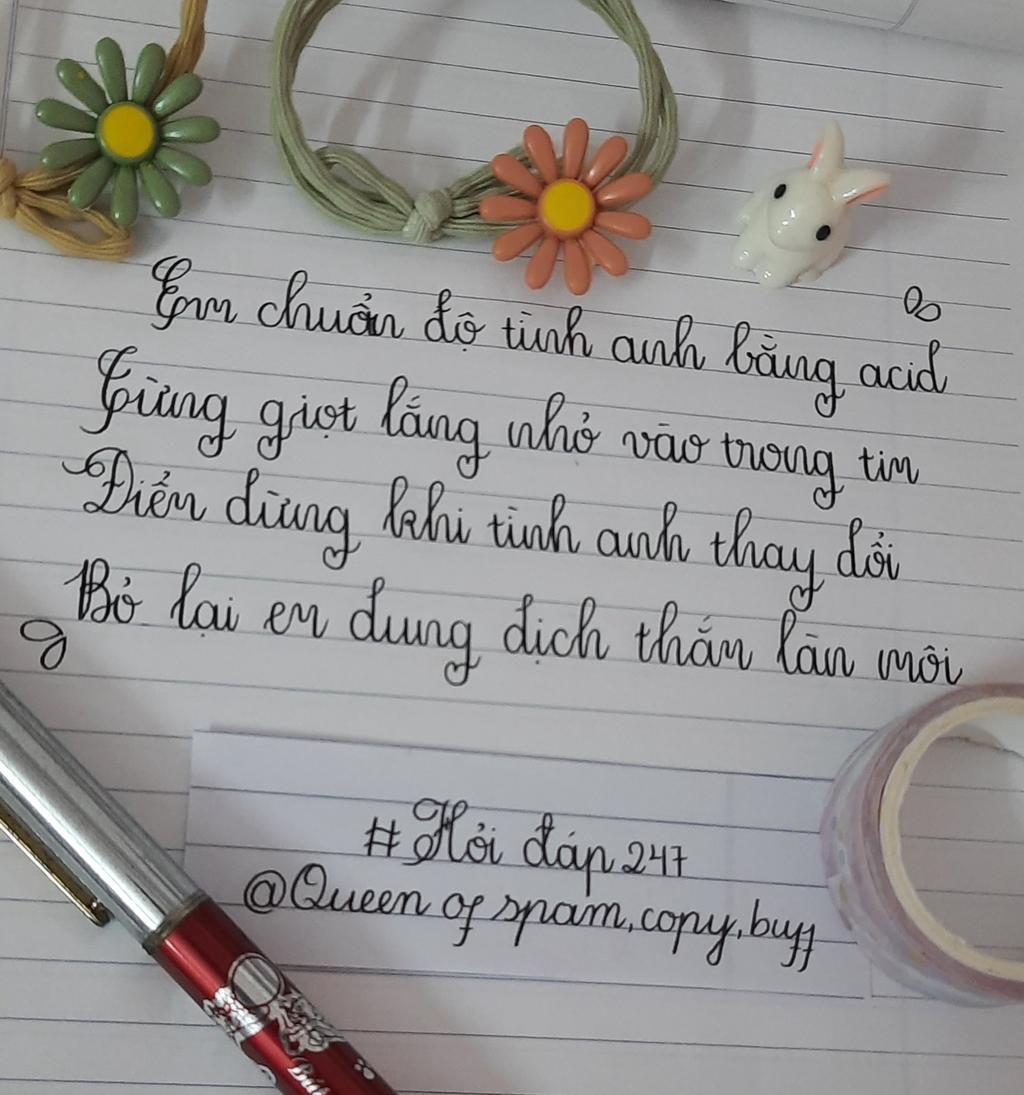 Em chuẩn độ tình anh bằng acid
Từng giọt lắng nhỏ vào trong tim
Điểm dừng khi tình anh thay đổi
Bỏ lại em dung dịch thắm làn môi
#Hỏi đáp 247
@Queen of spam, copy, buff